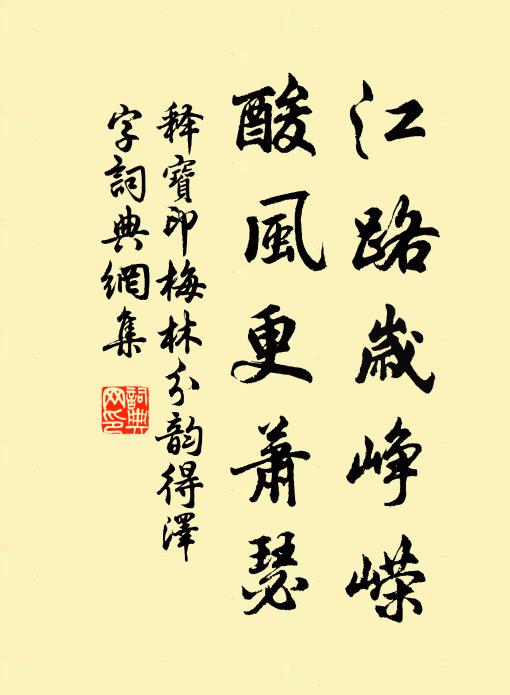 江路歲崢嶸
酸風更蕭瑟
释寶印梅林分韵得澤
字詞典網集
詞典
网印